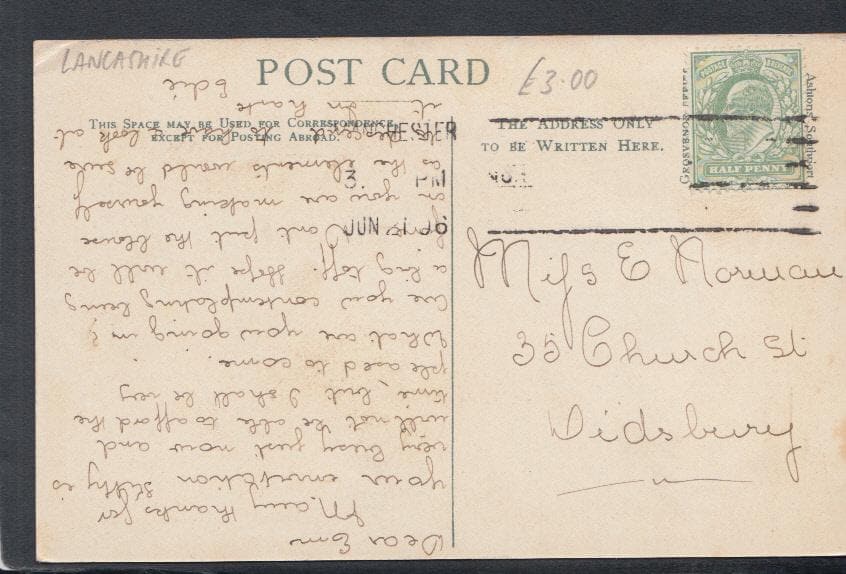 LANCASHIRE
POST CARD
£3.00
THIS SPACE MAY BE USED FOR CORRESPONDENCE
EXCEPT FOR POSTING ABROAD.
THE ADDRESS ONLY
TO BE WRITTEN HERE.
GROSVENOR SERIES
POSTAGE REVENUE
HALF PENNY
HESTER
3. PM
JUN 1 06
Miss E Norman
35 Church St
Didsbury
Dear Em
Many thanks for
your invitation is
very busy just now and
will not be able to afford the
time, but I shall be very
pleased to come.
What are you going in?
Are you contemplating being
a big toff. Hope it will be
fine. Don't put the blouse
on you are making yourself
as the elements would be sure
to descend to have a look at
it
In haste
Edie